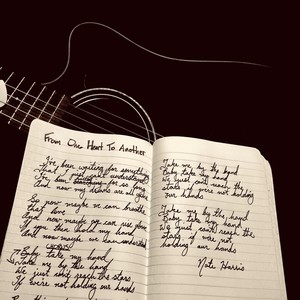 From One Heart To Another
I've been waiting for something
That I just can't understand
I've been for so long
And now my dreams are all
So now maybe we can breathe
this love
And now maybe we can rise above
We then hold my hand
Well now maybe we can understand
CHORUS
Baby take my hand
Take me by the hand
We just can't reach the stars
If we're not holding our hands
Take me by the hand
Baby take my hand
We just can't reach the
stars if we're not holding
our hands
Take me by the hand
Baby take my hand
We just can't reach the
stars if we're not
holding our hands
Nate Harris